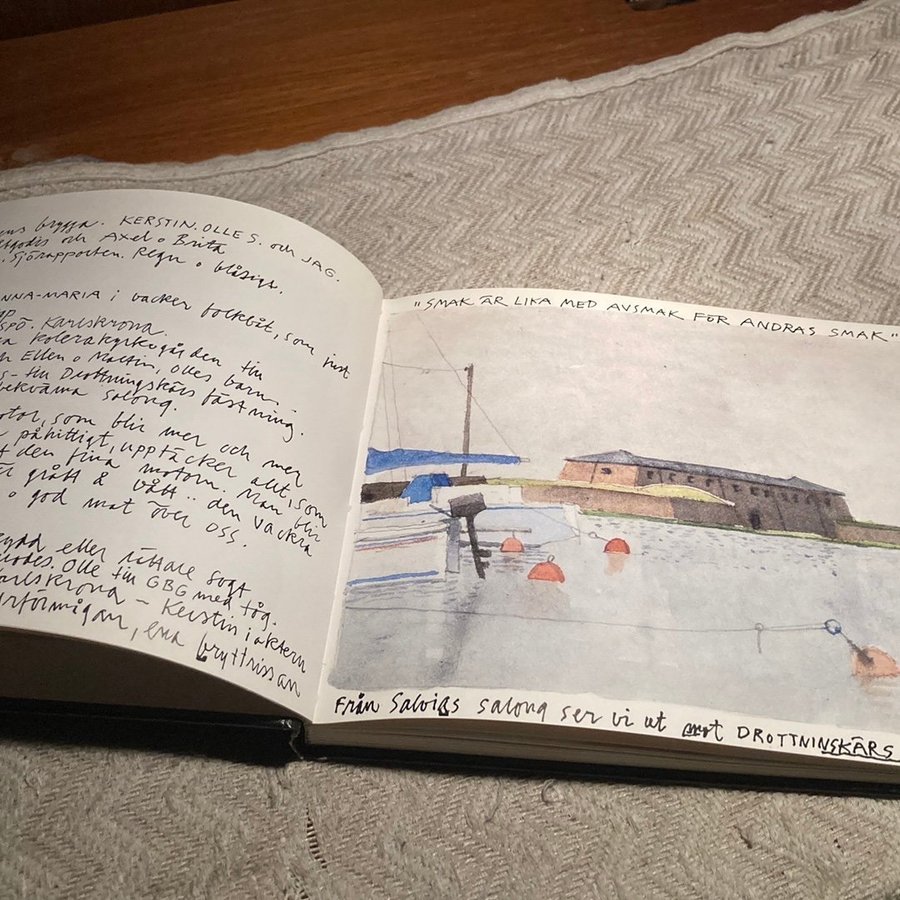 ens brygga. KERSTIN. OLLE S. och JAG.
och Axel o Brita
Sjörapporten. Regn o blåsigt.
NNA-MARIA i vacker folkbåt, som just
SPÖ. Karlskrona.
a kolerakyrkogården till
Ellen o Martin, Olles barn. -
s - till Drottningskärs fästning.
bekväma salong.
otor, som blir mer och mer
påhittigt, upptäcker allt, som
t den fina motorn. Man blir
grått & vått .. den vackra
o god mat över oss.
eller rättare sagt
Olle till GBG med tåg.
arlskrona - Kerstin i aktern
ena bryttrissan
"SMAK ÄR LIKA MED AVSMAK FÖR ANDRAS SMAK"
Från Salvias salong ser vi ut mot DROTTNINSKÄRS